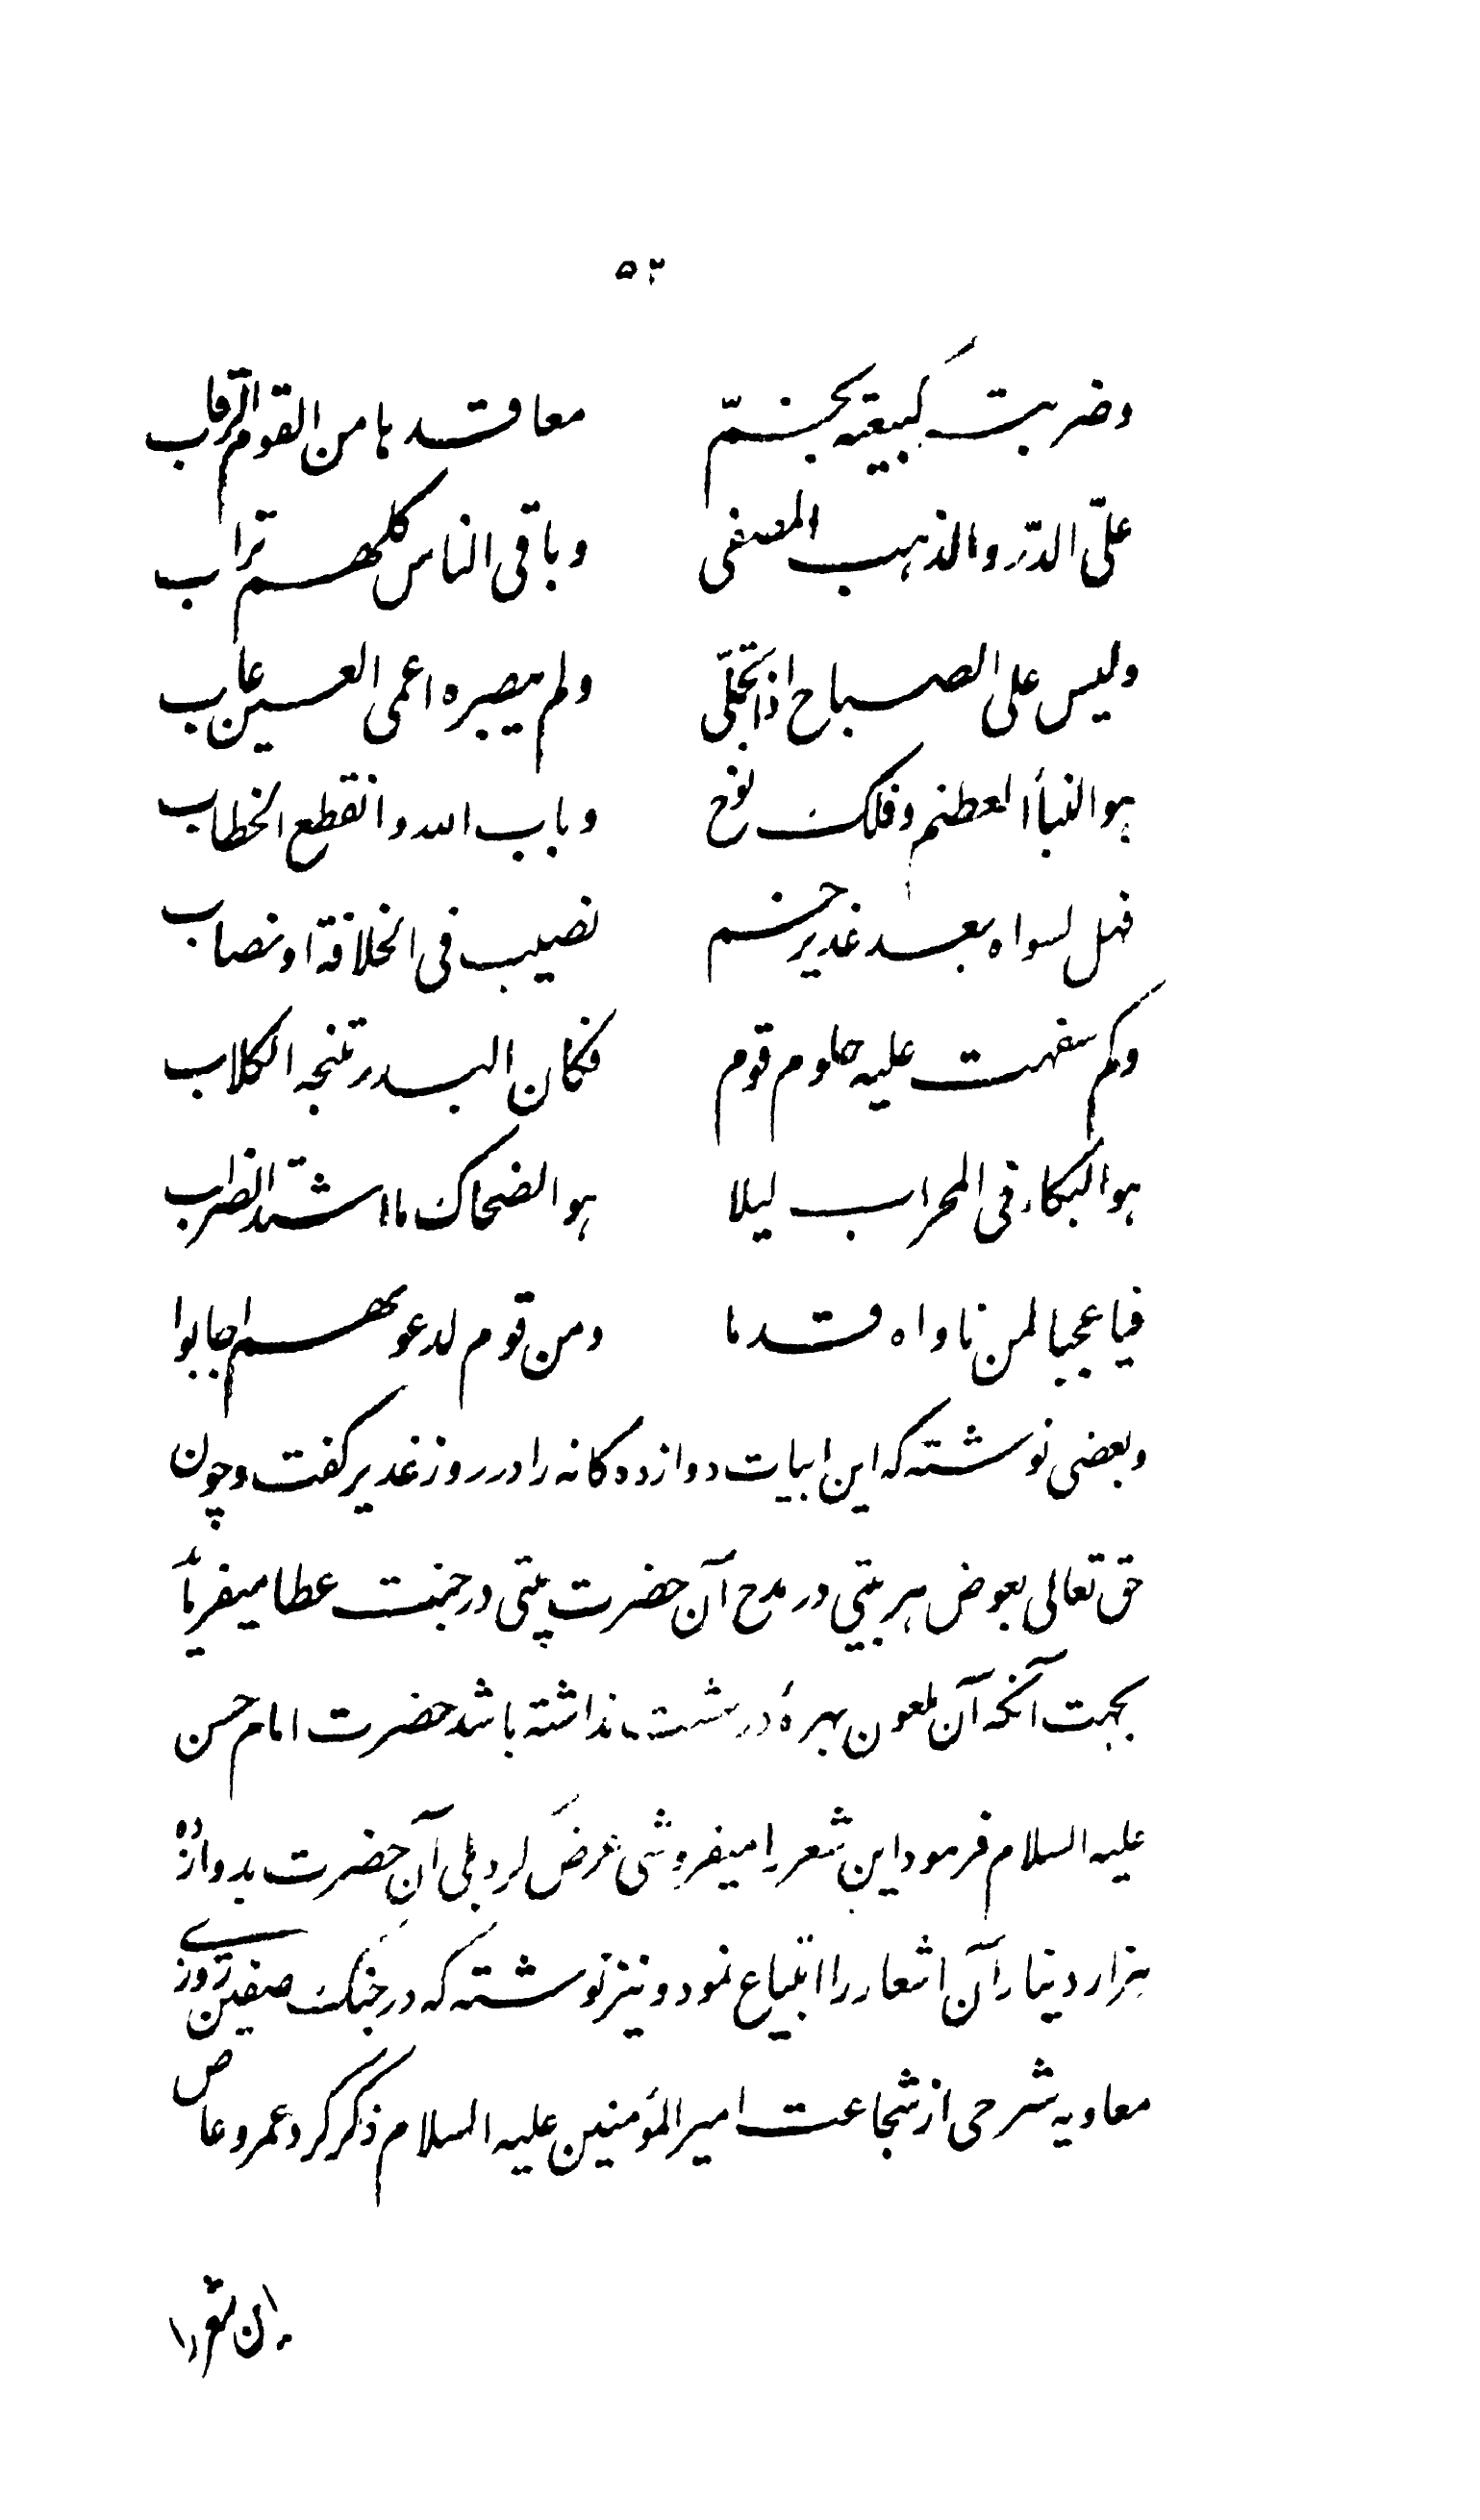 ۵۳
وضربته کبیعته بخمّ معاقدها من القوم الرقاب
علیّ الدّر والذهب المصفی وباقی الناس کلهم تراب
ولیس علی الصباح اذا تجلّی ولم یبصره اعمی العین عاب
هو النبأ العظیم وفلک نوح وباب الله وانقطع الخطاب
فهل لسواه بعد غدیر خم نصیب فی الخلافة او نصاب
وکم سفهت علیه حلوم قوم فکان البدر تنبحه الکلاب
هو البکاء فی المحراب لیلا هو الضحاک ما اشتد الضراب
فیا عجبا لمن ناواه قدما ومن قوم لدعوتهم اجابوا
وبعضی نوشته که این ابیات دوازده کانه را در روز غدیر کفت و چون
حق تعالی بعوض هر بیتی در مدح آن حضرت بیتی در جنت عطا میفرماید
بجهت آنکه آن ملعون بهرهٔ در بهشت نداشته باشد حضرت امام حسن
علیه السلام فرمود این شعر را میفروشی عرض کرد بلی آن حضرت بدوازده
هزار دینار آن اشعار را ابتیاع نمود و نیز نوشته که در جنک صفین روزی
معاویه شرحی از شجاعت امیر المؤمنین علیه السلام ذکر کرد و عمرو عاص
این شعر را